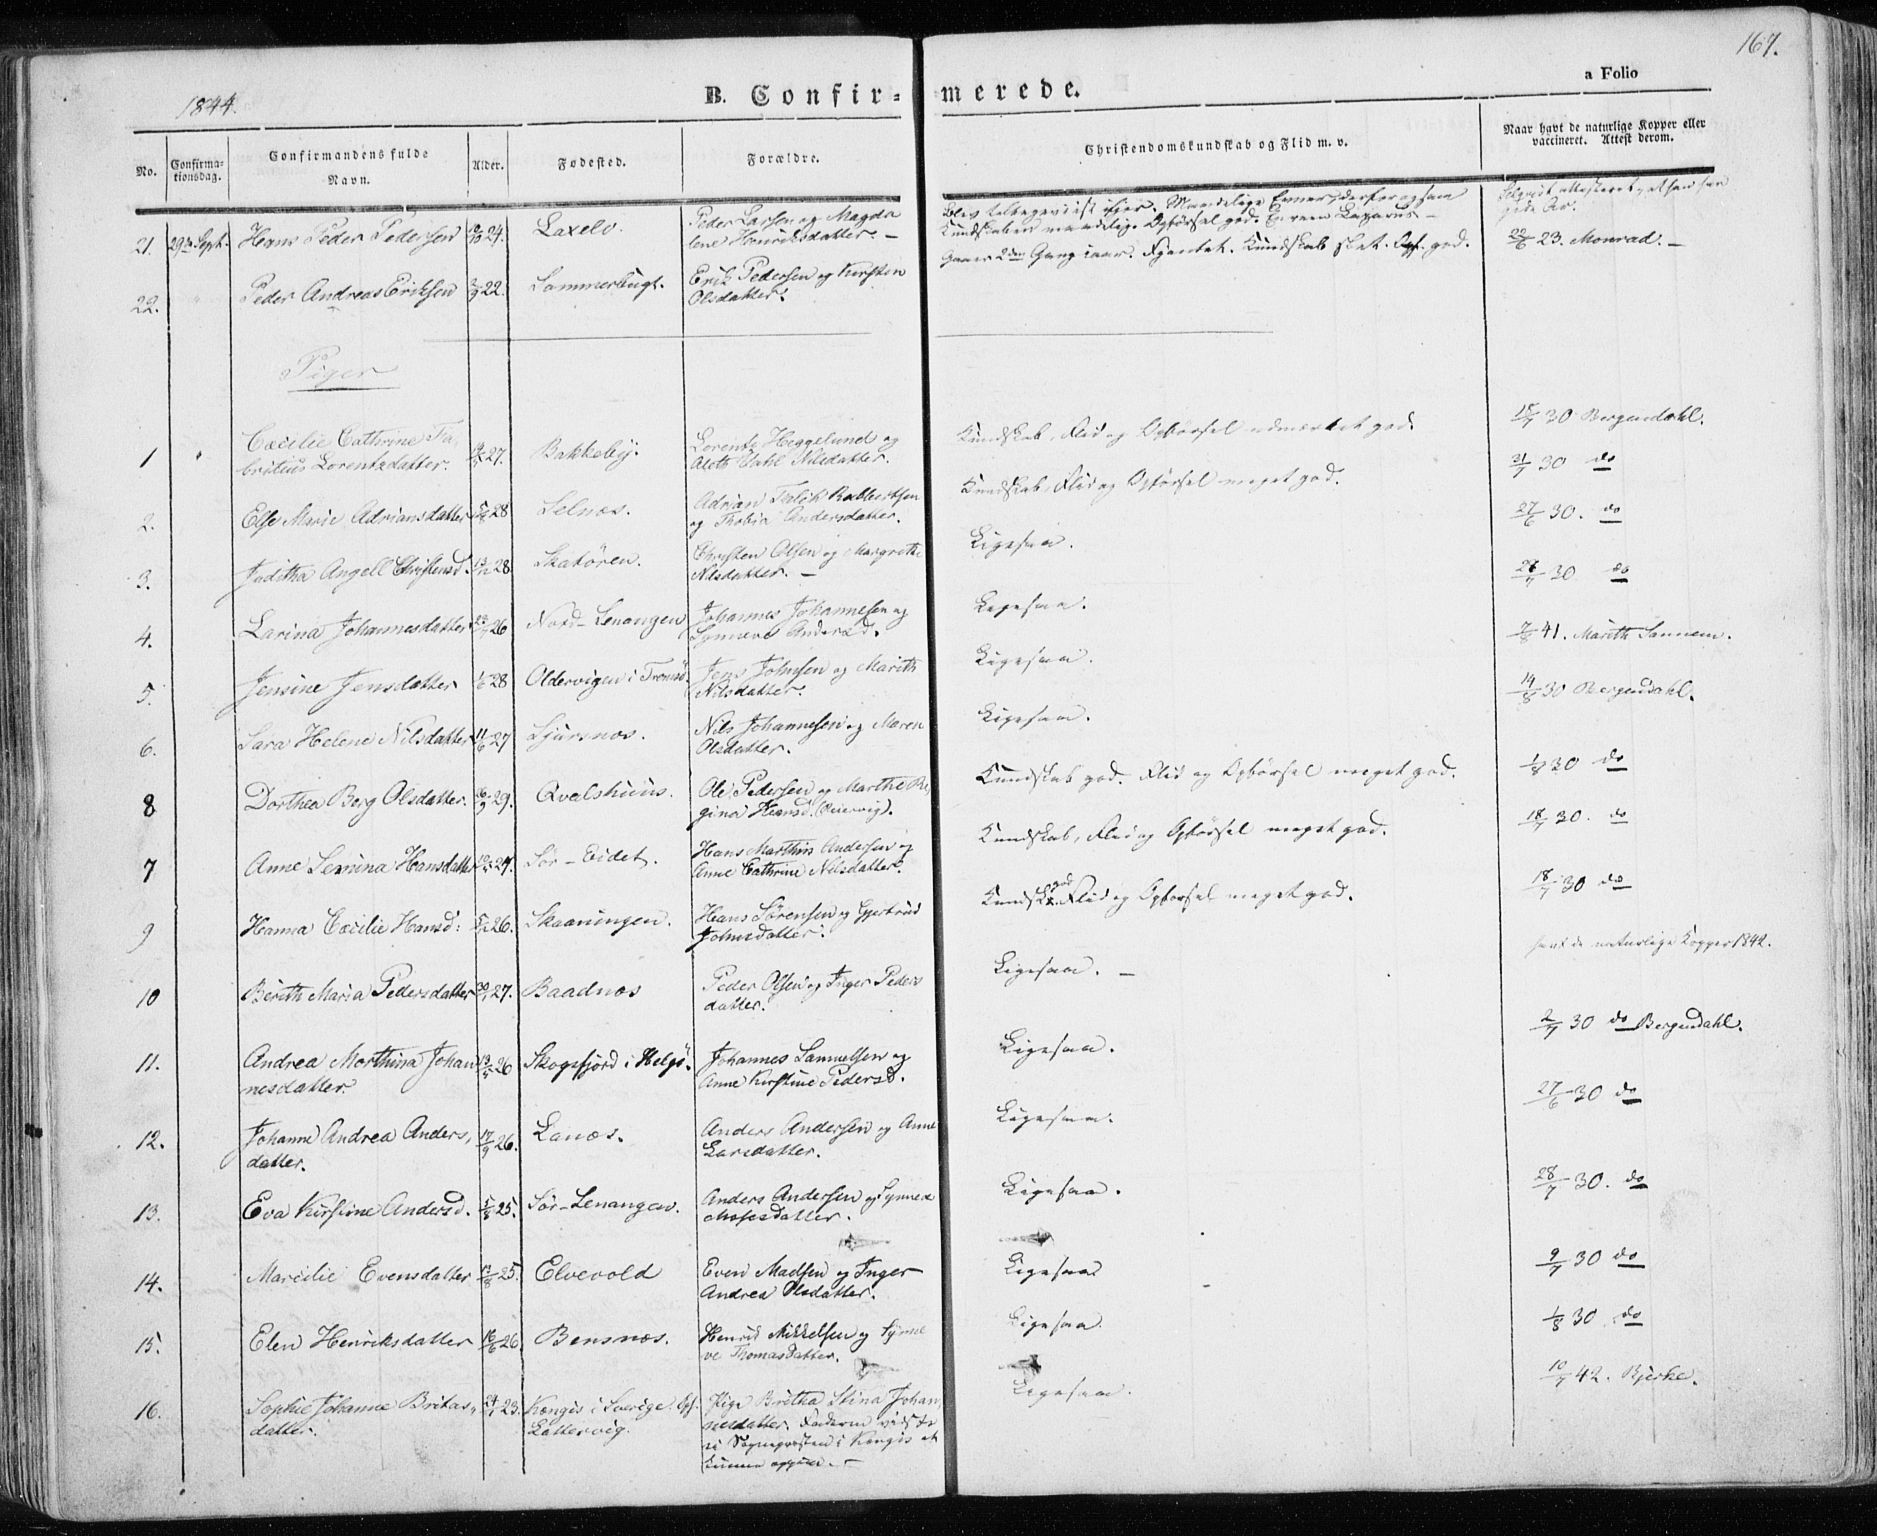 167.
1844.
B. Confir= merede.
a Folio
No.
Confirma-
tionsdag.
Confirmandens fulde
Navn.
Alder.
Fødested.
Forældre.
Christendomskundskab og Flid m. v.
Naar havt de naturlige Kopper eller
vaccineret. Attest derom.
21. 29de Sept. Hans Peder Pedersen 24. Laxelv. Peder Larsen og Magda
lene Henriksdatter. —
22. Peder Andreas Eriksen 22. Sommerbugt. Erik Pedersen og Kirsten
Olsdatter.
Gaaer 2den Gang iaar. Kundskab slet. Opf. god. 22/6 23. Monrad. —
Piger
1 Cæcilie Cathrine Fa,
britius Lorentzdatter. 27. Bakkeby. Lorentz Heggelund og
Dahl Nilsdatter.
Kundskab, Flid og Opførsel udmærket god. 15/7 30 Bergendahl.
2. Else Marie Adriansdatter 28 Selnæs. Adrian
og Thobia Andersdatter.
Kundskab, Flid og Opførsel meget god. 31/7 30 do
3. Juditha Angell Christensd. 28 Skatören. Christen Olsen og Margrethe
Nilsdatter. —
Ligesaa. 27/6 30. do
4. Larina Johannesdatter 26 Nord-Lenangen Johannes Johannesen og
Andersd.
Ligesaa. 30 do
5. Jensine Jensdatter 1/6 28 Oldervigen i Tromsö. Jens Johnsen og Marith
Nilsdatter.
Ligesaa. 7/8 41. Marith Sannem.
6. Sara Helene Nilsdatter 11/6 27 Sjursnæs. Nils Johannesen og Maren
Olsdatter.
Ligesaa. 14/8 30 Bergendahl.
8 Dorthea Berg Olsdatter. 29. Qvalshuus. Ole Pedersen og Marthe Re,
gina Hansd.
Kundskab god. Flid og Opførsel meget god. 1/8 30 do
7 Anne Hansdatter 27. Sör-Eidet. Hans Marthin Andersen og
Anne Cathrine Nilsdatter.
Kundskab, Flid og Opførsel meget god. 18/7 30. do
9 Hanna Cæcilie Hansd: 26. Skaaningen. Hans Sörensen og Gjertrud
Johnsdatter.
Kundsk. god Flid og Opførsel meget god. 18/7 30 do
10 Berith Maria Pedersdatter 27. Baadnæs Peder Olsen og Inger Peders
datter.
Ligesaa. — havt de naturlige Kopper 1842.
11. Andrea Morthina Johan
nesdatter. 26 Skogsfjord i Helgö. Johannes Samuelsen og
Anne Kirstine Pedersd.
Ligesaa. 2/7 30 do Bergendahl.
12. Johanne Andrea Anders,
datter. 17/9 26. Lanæs. Anders Andersen og Anne
Larsdatter.
Ligesaa. 27/6 30 do
13. Eva Kirstine Andersd. 5/8 25. Sör-Lenangen. Anders Andersen og Synneve
Mosesdatter.
Ligesaa. 28/7 30. do
14. Marcilie Evensdatter 25. Elvevold Even Madsen og Inger
Andrea Olsdatter.
Ligesaa 9/7 30 do
15. Elen Henriksdatter 16/6 26. Bensnæs. Henrik Mikkelsen og Synne
ve Thomasdatter.
Ligesaa 1/8 30 do
16. Sophie Johanne Britas,
datter. 23. Kengis i Sverige.
Lattervig. Pige Britha Stina Johan,
nesdatter. Faderen vidste
ei Sognepresten i Kengis at
kunne opgive. —
Ligesaa. 10/7 42. Bjerke.